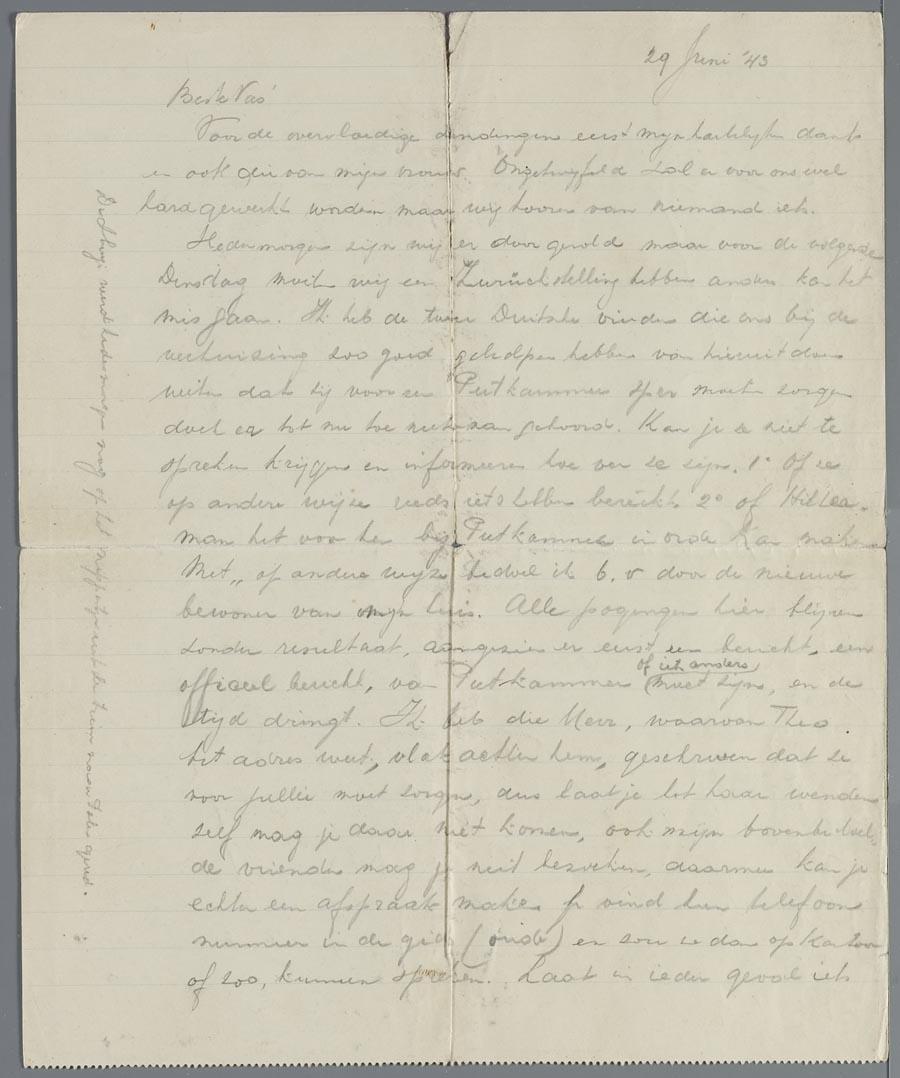 29 Juni '43
Beste Vas
Voor de overvloedige zendingen eerst mijn hartelijken dank
en ook die van mijn vrouw. Ongetwijfeld zal er voor ons veel
hard gewerkt worden maar wij hooren van niemand iets.
Hedenmorgen zijn wij er door gerold maar voor de volgende
Dinsdag moeten wij een Zurückstelling hebben anders kan het
mis gaan. Ik heb de twee Duitsche vrienden die ons bij de
verhuizing zoo goed geholpen hebben van hieruit doen
weten dat zij voor een Putkammer sper moeten zorgen
doch er tot nu toe niets van gehoord. Kan je ze niet te
spreken krijgen en informeeren hoe ver ze zijn. 1° Of ze
op andere wijze reeds iets hebben bereikt 2° of
man het voor hen bij Putkammer in orde kan maken
Met „ op andere wijze bedoel ik b.v door de nieuwe
bewoner van mijn huis. Alle pogingen hier blijven
zonder resultaat, aangezien er eerst een bericht, een
officieel bericht, van Putkammer (of iets anders) moet zijn, en de
tijd dringt. Ik heb die Mevr, waarvan Theo
het adres weet, vlak achter hem, geschreven dat ze
voor jullie moet zorgen, dus laat je tot haar wenden
zelf mag je daar niet komen, ook mijn bovenbedoel-
de vrienden mag je niet bezoeken, daarmee kan je
echter een afspraak maken je vind hun telefoon
nummer in de gids (oude) en zou ze dan op kantoor
of zoo, kunnen spreken. Laat in ieder geval iets
werd hedenmorgen nog op het